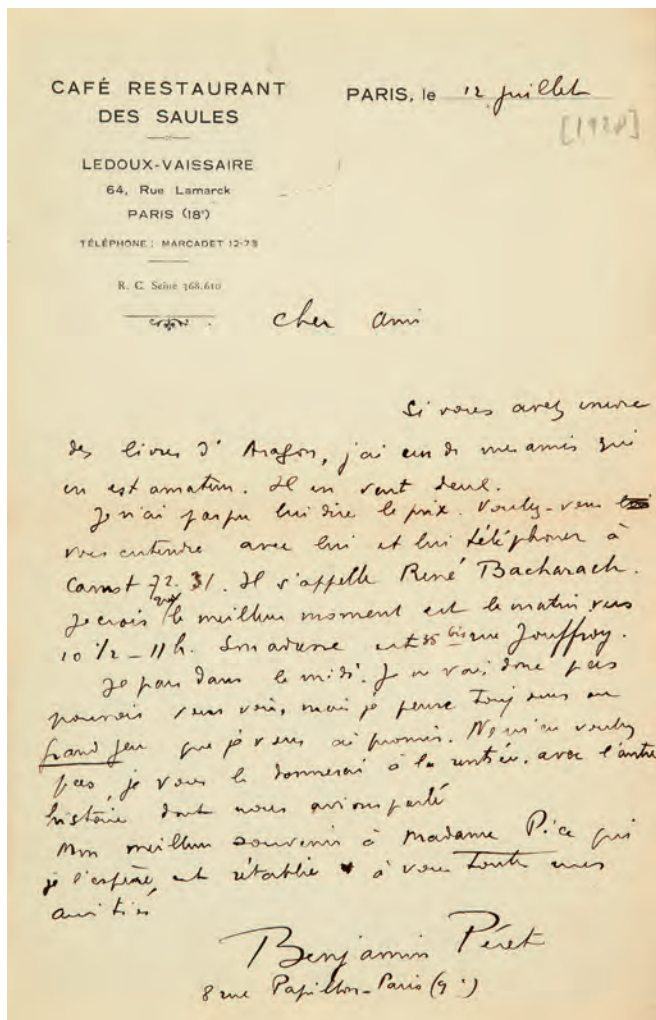 CAFÉ RESTAURANT
DES SAULES
LEDOUX-VAISSAIRE
64, Rue Lamarck
PARIS (18ᵉ)
TÉLÉPHONE : MARCADET 12-73
R. C. Seine 368.610
PARIS, le 12 juillet
[1928]
Cher ami
Si vous avez encore
des livres d'Aragon, j'ai un de mes amis qui
en est amateur. Il en veut deux.
Je n'ai pas pu lui dire le prix. Voulez-vous
vous entendre avec lui et lui téléphoner à
Carnot 72.31. Il s'appelle René Bacharach.
Je crois que le meilleur moment est le matin vers
10 1/2 - 11 h. Son adresse est 35 bis rue Jouffroy.
Je pars dans le midi. Je ne vais donc pas
pouvoir vous voir, mais je pense toujours au
grand jeu que je vous ai promis. Ne m'en voulez
pas, je vous le donnerai à la rentrée, avec l'autre
histoire dont nous avions parlé
Mon meilleur souvenir à Madame Pice qui
je l'espère, est rétablie à vous toutes mes
amitiés
Benjamin Péret
8 rue Papillon - Paris (9e)